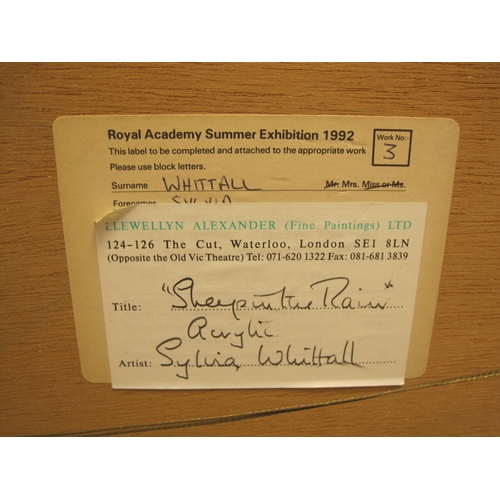 Royal Academy Summer Exhibition 1992
Work No:
3
This label to be completed and attached to the appropriate work
Please use block letters.
Surname WHITTALL Mr. Mrs. Miss or Ms.
Forenames SYLVIA
LLEWELLYN ALEXANDER (Fine Paintings) LTD
124-126 The Cut, Waterloo, London SE1 8LN
(Opposite the Old Vic Theatre) Tel: 071-620 1322 Fax: 081-681 3839
Title: "Sheep in the Rain"
Acrylic
Artist: Sylvia Whittall